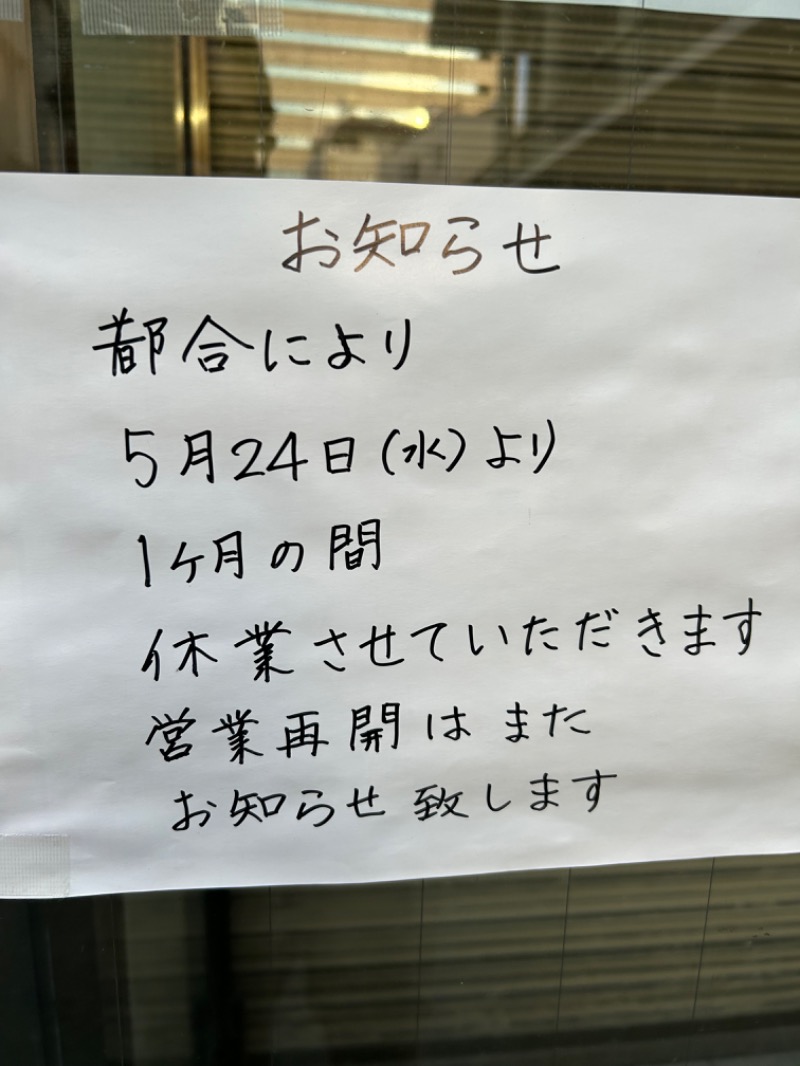 お知らせ
都合により
5月24日(水)より
1ヶ月の間
休業させていただきます
営業再開はまた
お知らせ致します